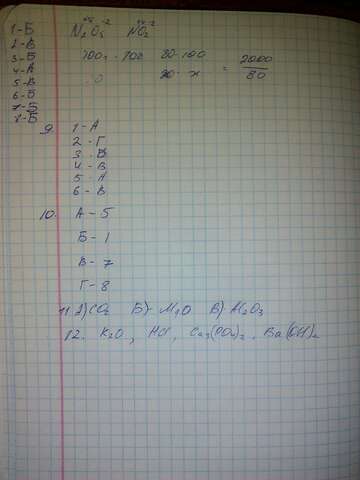 1-Б
2-В
3-Б
4-А
5-В
6-Б
7-Б
8-Б
N₂O₅ -2 NO₂ -2
100 20·100 2000
20·x = 80
0
9. 1-А
2-Г
3-В
4-В
5-А
6-В
10. А-5
Б-1
В-7
Г-8
11. А) CO₂ Б) В) Al₂O₃
12. K₂O, HCl, Ca₃(PO₄)₂, Ba(OH)₂